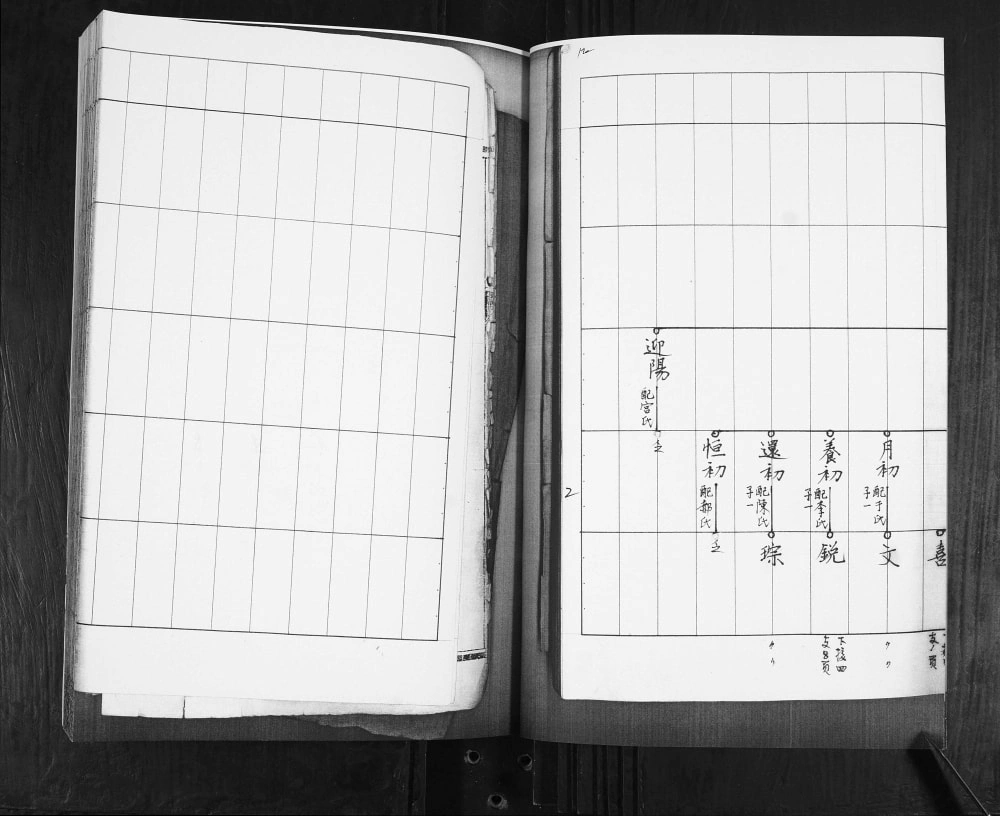 喜
月初
配于氏
子一
文
養初
配李氏
子一
鋭
下接四
支8頁
還初
配陳氏
子一
琮
恒初
配郝氏
迎陽
配宮氏
2